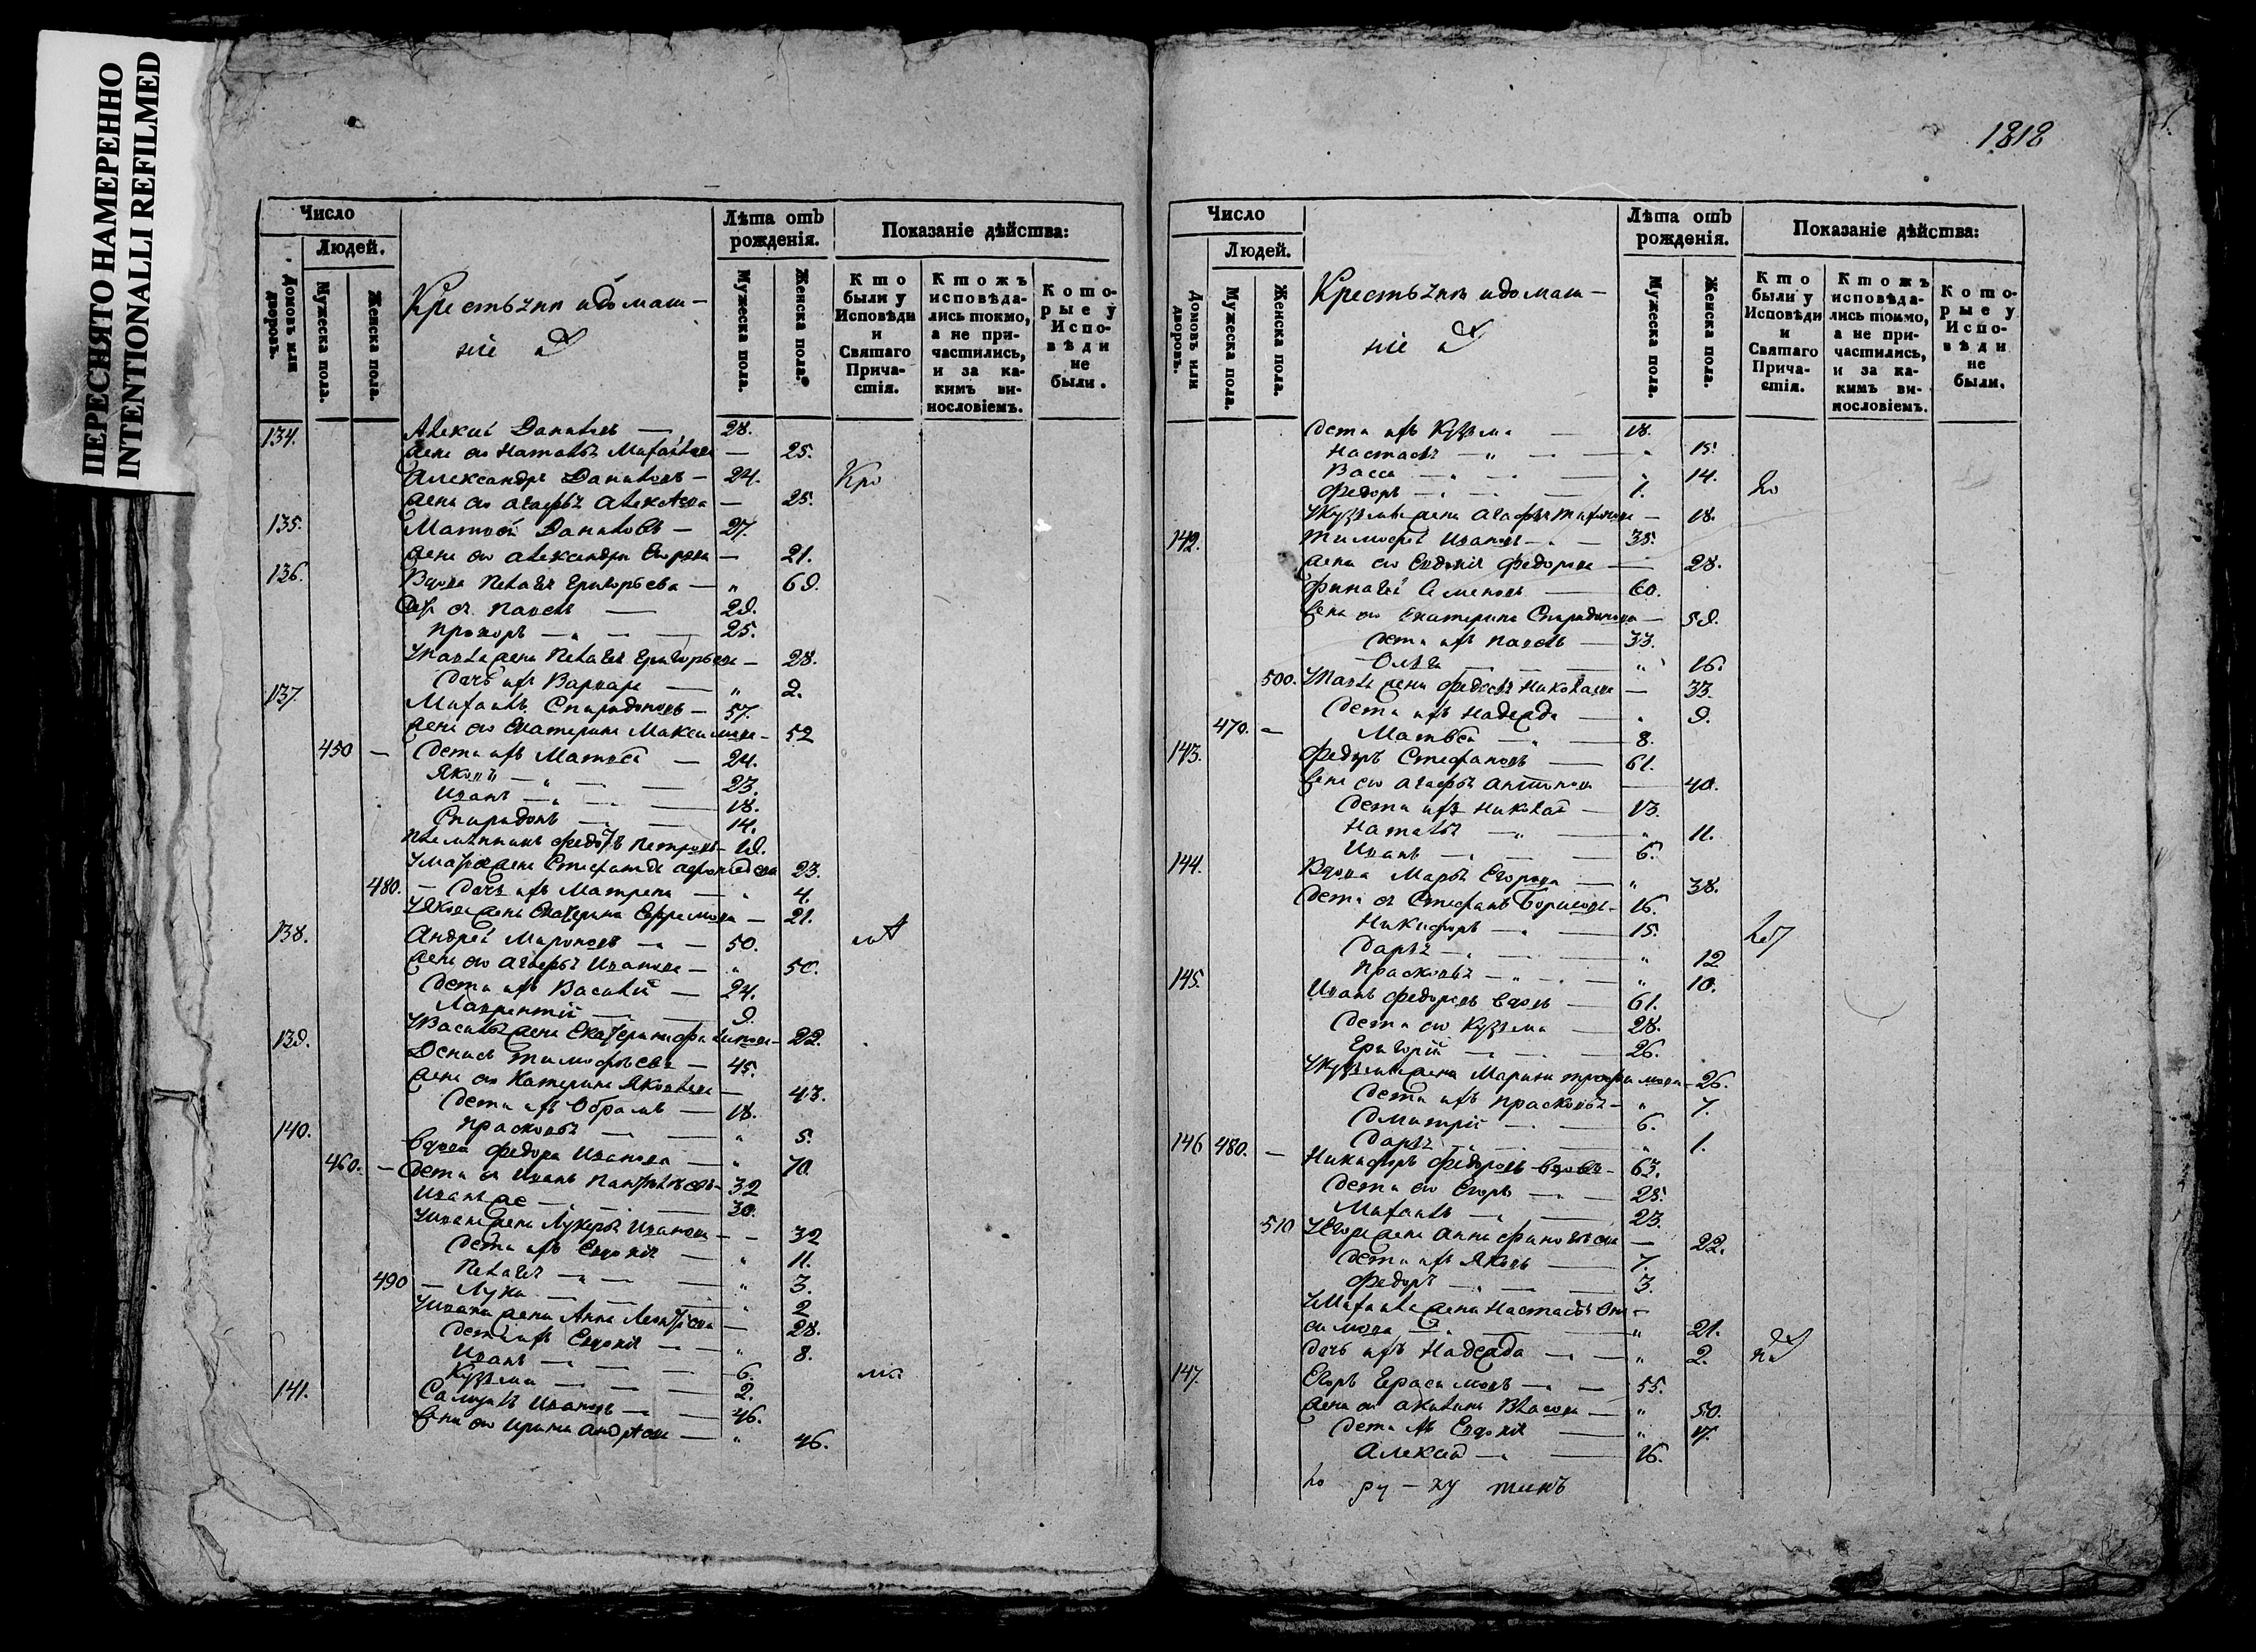 ПЕРЕСНЯТО НАМЕРЕННО
INTENTIONALLI REFILMED
Число
Людей.
Домовъ или дворовъ.
Мужеска пола.
Женска пола.
Крестьяни и домаш-
ніе
Лѣта отъ рожденія.
Мужеска пола.
Женска пола.
Показаніе дѣйства:
Кто были у Исповѣди и Святаго Причастія.
Ктожъ исповѣдались токмо, а не причастились, и за какимъ винословіемъ.
Которые у Исповѣди не были.
134. Алексий Данилов — 28.
жена его Наталья — 25.
Александръ Даниловъ — 24.
жена его Агафья — 25.
135. Матвей Даниловъ — 27.
жена его Александра Егорова — 21.
136. Вдова Пелагея Григорьева — " 69.
Павелъ — 29.
Прохоръ — " — 25.
У Павла жена Пелагея Григорьева — 28.
Дочь ихъ Варвара — " 2.
137. Михаилъ Спиридоновъ — 57.
жена его Екатерина Максимова — 52
450 — Дети ихъ Матвей — 24.
Яковъ — " — 23.
Иванъ — " — 18.
Спиридонъ — 14.
Племянникъ Федотъ Петровъ — 19.
23.
480. — Дочь ихъ Матрена — " 4.
У Якова жена Екатерина Ефремова — 21.
138. Андрей Мироновъ — 50.
жена его Агафья Иванова — " 50.
Дети ихъ Василий — 24.
Лаврентий — 9.
У Василья жена Екатерина Филипова — 22.
139. Денисъ Тимофеевъ — 45.
жена его Катерина Яковлева — 43.
Дети ихъ Обрамъ — 18.
Прасковья — " 5.
140. Вдова Федора Иванова — " 70.
460. — Дети ея Иванъ — 32
Иванъ же — 30.
У Ивана жена Лукерья Иванова — 32
Дети ихъ Евдокия — " 11.
Пелагея — " 3.
490 — Лука — " 2
У Ивана жена Анна — 28.
Дети ихъ Евдокия — " 8.
Иванъ — 6.
Кузьма — 2.
141. Самуилъ Ивановъ — 46.
жена его Ирина Андреева — " 46.
1818
Число
Людей.
Домовъ или дворовъ.
Мужеска пола.
Женска пола.
Крестьяни и домаш-
ніе
Лѣта отъ рожденія.
Мужеска пола.
Женска пола.
Показаніе дѣйства:
Кто были у Исповѣди и Святаго Причастія.
Ктожъ исповѣдались токмо, а не причастились, и за какимъ винословіемъ.
Которые у Исповѣди не были.
Дети ихъ Кузьма — 18.
Настасья — " 15.
Васса — " 14.
Федоръ — 1.
У Кузьмы жена Агафья — 18.
142. Тимофей Ивановъ — 35.
жена его Евдокия Федорова — 28.
Семеновъ — 60.
жена его Екатерина Спиридонова — 59.
Дети ихъ Павелъ — 33.
Ольга — " 16.
500. У Павла жена Федосья Николаева — 33.
Дети ихъ Надежда — " 9.
470. — Матвей — 8.
143. Федоръ Стефановъ — 61.
жена его Агафья Антонова — 40.
Дети ихъ Николай — 13.
Наталья — " 11.
Иванъ — 6.
144. Вдова Марья Егорова — " 38.
Дети ея Стефанъ Борисовъ — 16.
Никифоръ — 15.
Дарья — " 12
Прасковья — " 10.
145. Иванъ Федоровъ вдовъ — 61.
Дети его Кузьма — 28.
Григорий — 26.
У Кузьмы жена Марина Трофимова — 26.
Дети ихъ Прасковья — " 7.
Дмитрий — 6.
Дарья — " 1.
146 480. — Никифоръ Федоровъ вдовъ — 63.
Дети его Егоръ — 25.
Михаилъ — 23.
510 У Егора жена Анна — 22.
Дети ихъ Яковъ — 7.
Федоръ — 3.
У Михаила жена Настасья
симова — " 21.
Дочь ихъ Надежда — " 2.
147. Егоръ Герасимовъ — 55.
жена его Акилина Власова — " 50.
Дети ихъ Евдокия — " 17.
Алексей — 16.